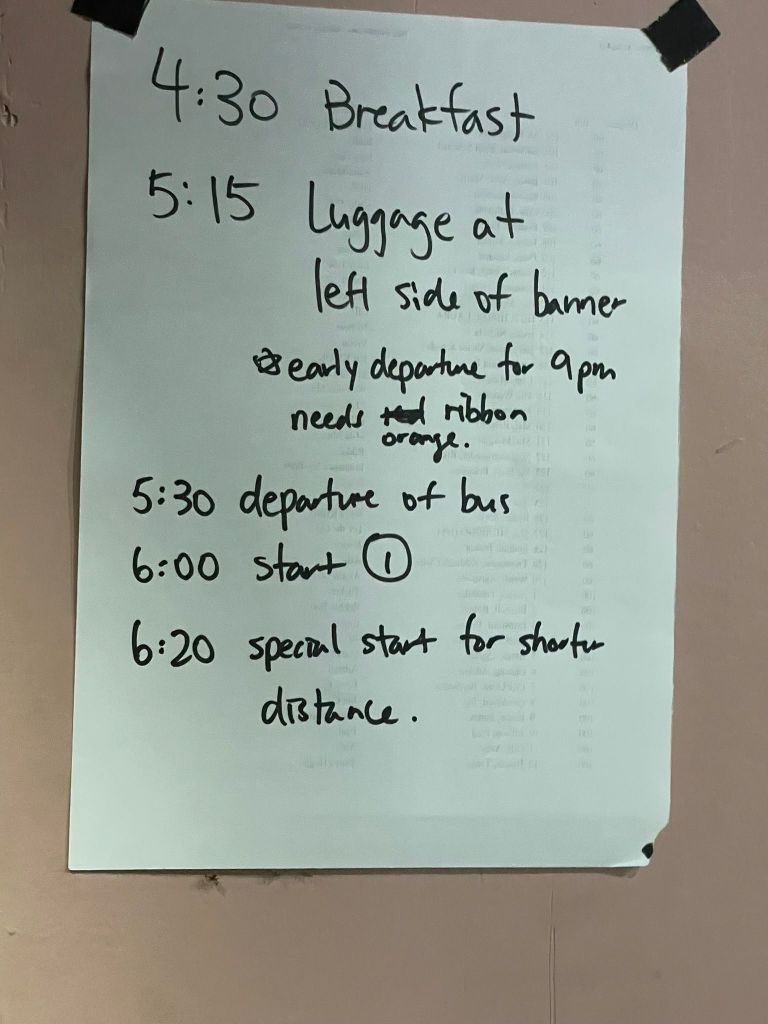 4:30 Breakfast
5:15 Luggage at
left side of banner
☆ early departure for 9pm
needs ribbon
orange.
5:30 departure of bus
6:00 start ①
6:20 special start for shorter
distance.